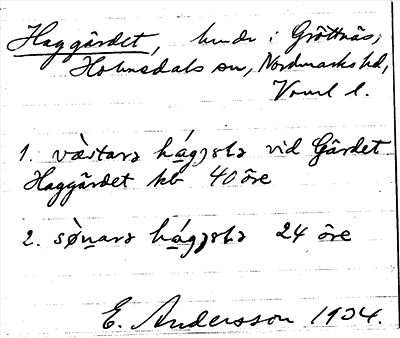 Haggårdet, hmde i Gröttnäs,
Holmedals sn, Nordmarks hd,
Vrml l.
1. væstarə hág͡gəstə vid Gårdet
Haggårdet kb 40 öre
2. sø̀narə hág͡gəstə 24 öre
E. Andersson 1904.